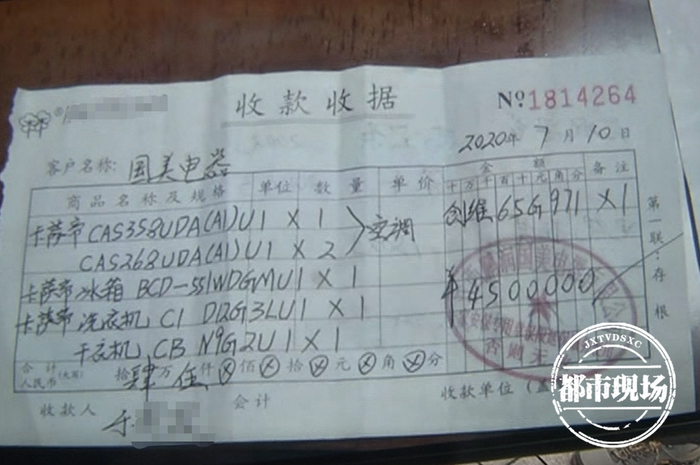 收款收据
№1814264
2020年7月10日
客户名称: 国美电器
商品名称及规格 单位 数量 单价 金额 十万千百十元角分 备注
卡萨帝 CAS358UDA(A1)U1 X 1 空调 创维 65G 971 X1
CAS268UDA(A1)U1 X 2
卡萨帝 冰箱 BCD-551WDGMU1 X 1 ¥4500000
卡萨帝 洗衣机 C1 D12G3LU1 X 1
干衣机 CB N9G2U1 X 1
合计人民币(大写) 拾肆万伍仟⊗佰⊗拾⊗元⊗角⊗分
收款人 会计 收款单位
第一联:存根
JXTVDSXC
都市现场